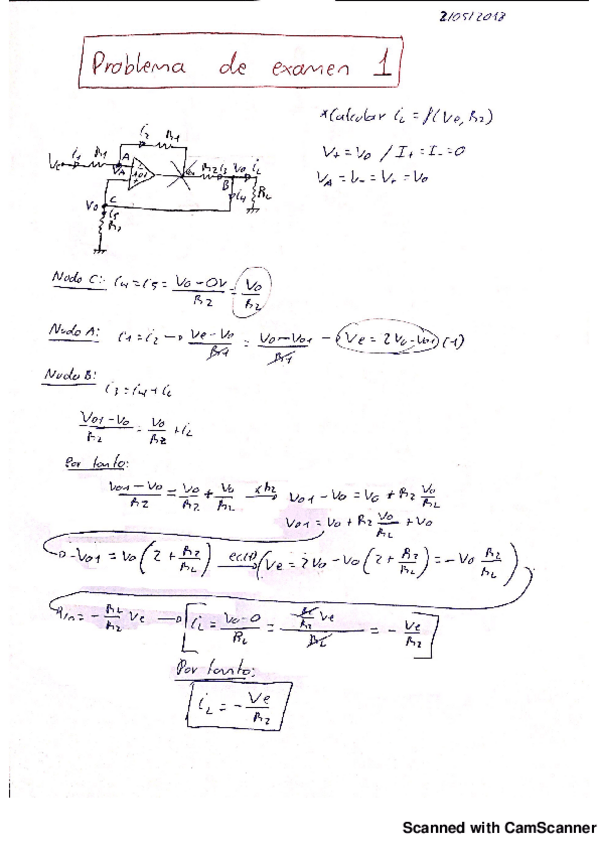 2/05/2013
Problema de examen 1
*Calcular iL = f(Ve, R2)
V+ = Vo / I+ = I- = 0
VA = V- = V+ = Vo
Ve i1 R1 A i2 R1 R2 i3 Vo iL
VA B i4 RL
Vo C
i5
Nodo C: i4 = i5 = Vo - 0V / R2 = Vo / R2
Nudo A: i1 = i2 → Ve - Vo / R1 = Vo - Vo1 / R1 → Ve = 2Vo - Vo1 (1)
Nudo B: i3 = i4 + iL
Vo1 - Vo / R2 = Vo / R2 + iL
Por tanto:
Vo1 - Vo / R2 = Vo / R2 + Vo / RL xR2 → Vo1 - Vo = Vo + R2 Vo / RL
Vo1 = Vo + R2 Vo / RL + Vo
→ Vo1 = Vo (2 + R2 / RL) ec.(1) → (Ve = 2Vo - Vo (2 + R2 / RL) = - Vo R2 / RL)
= - RL / R2 Ve → [iL = Vo - 0 / RL = RL / R2 Ve / RL = - Ve / R2]
Por tanto:
iL = - Ve / R2
Scanned with CamScanner